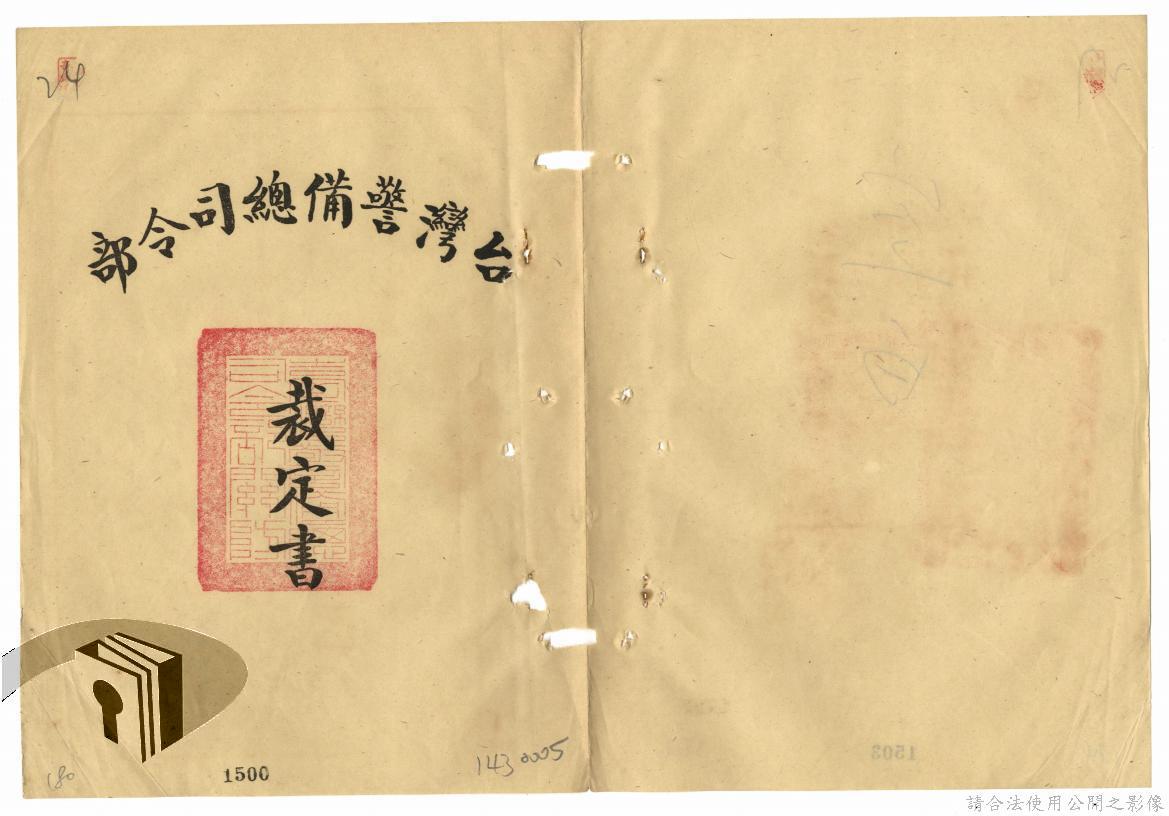 24
台灣警備總司令部
裁定書
180
1500
1430005
1503
請合法使用公開之影像